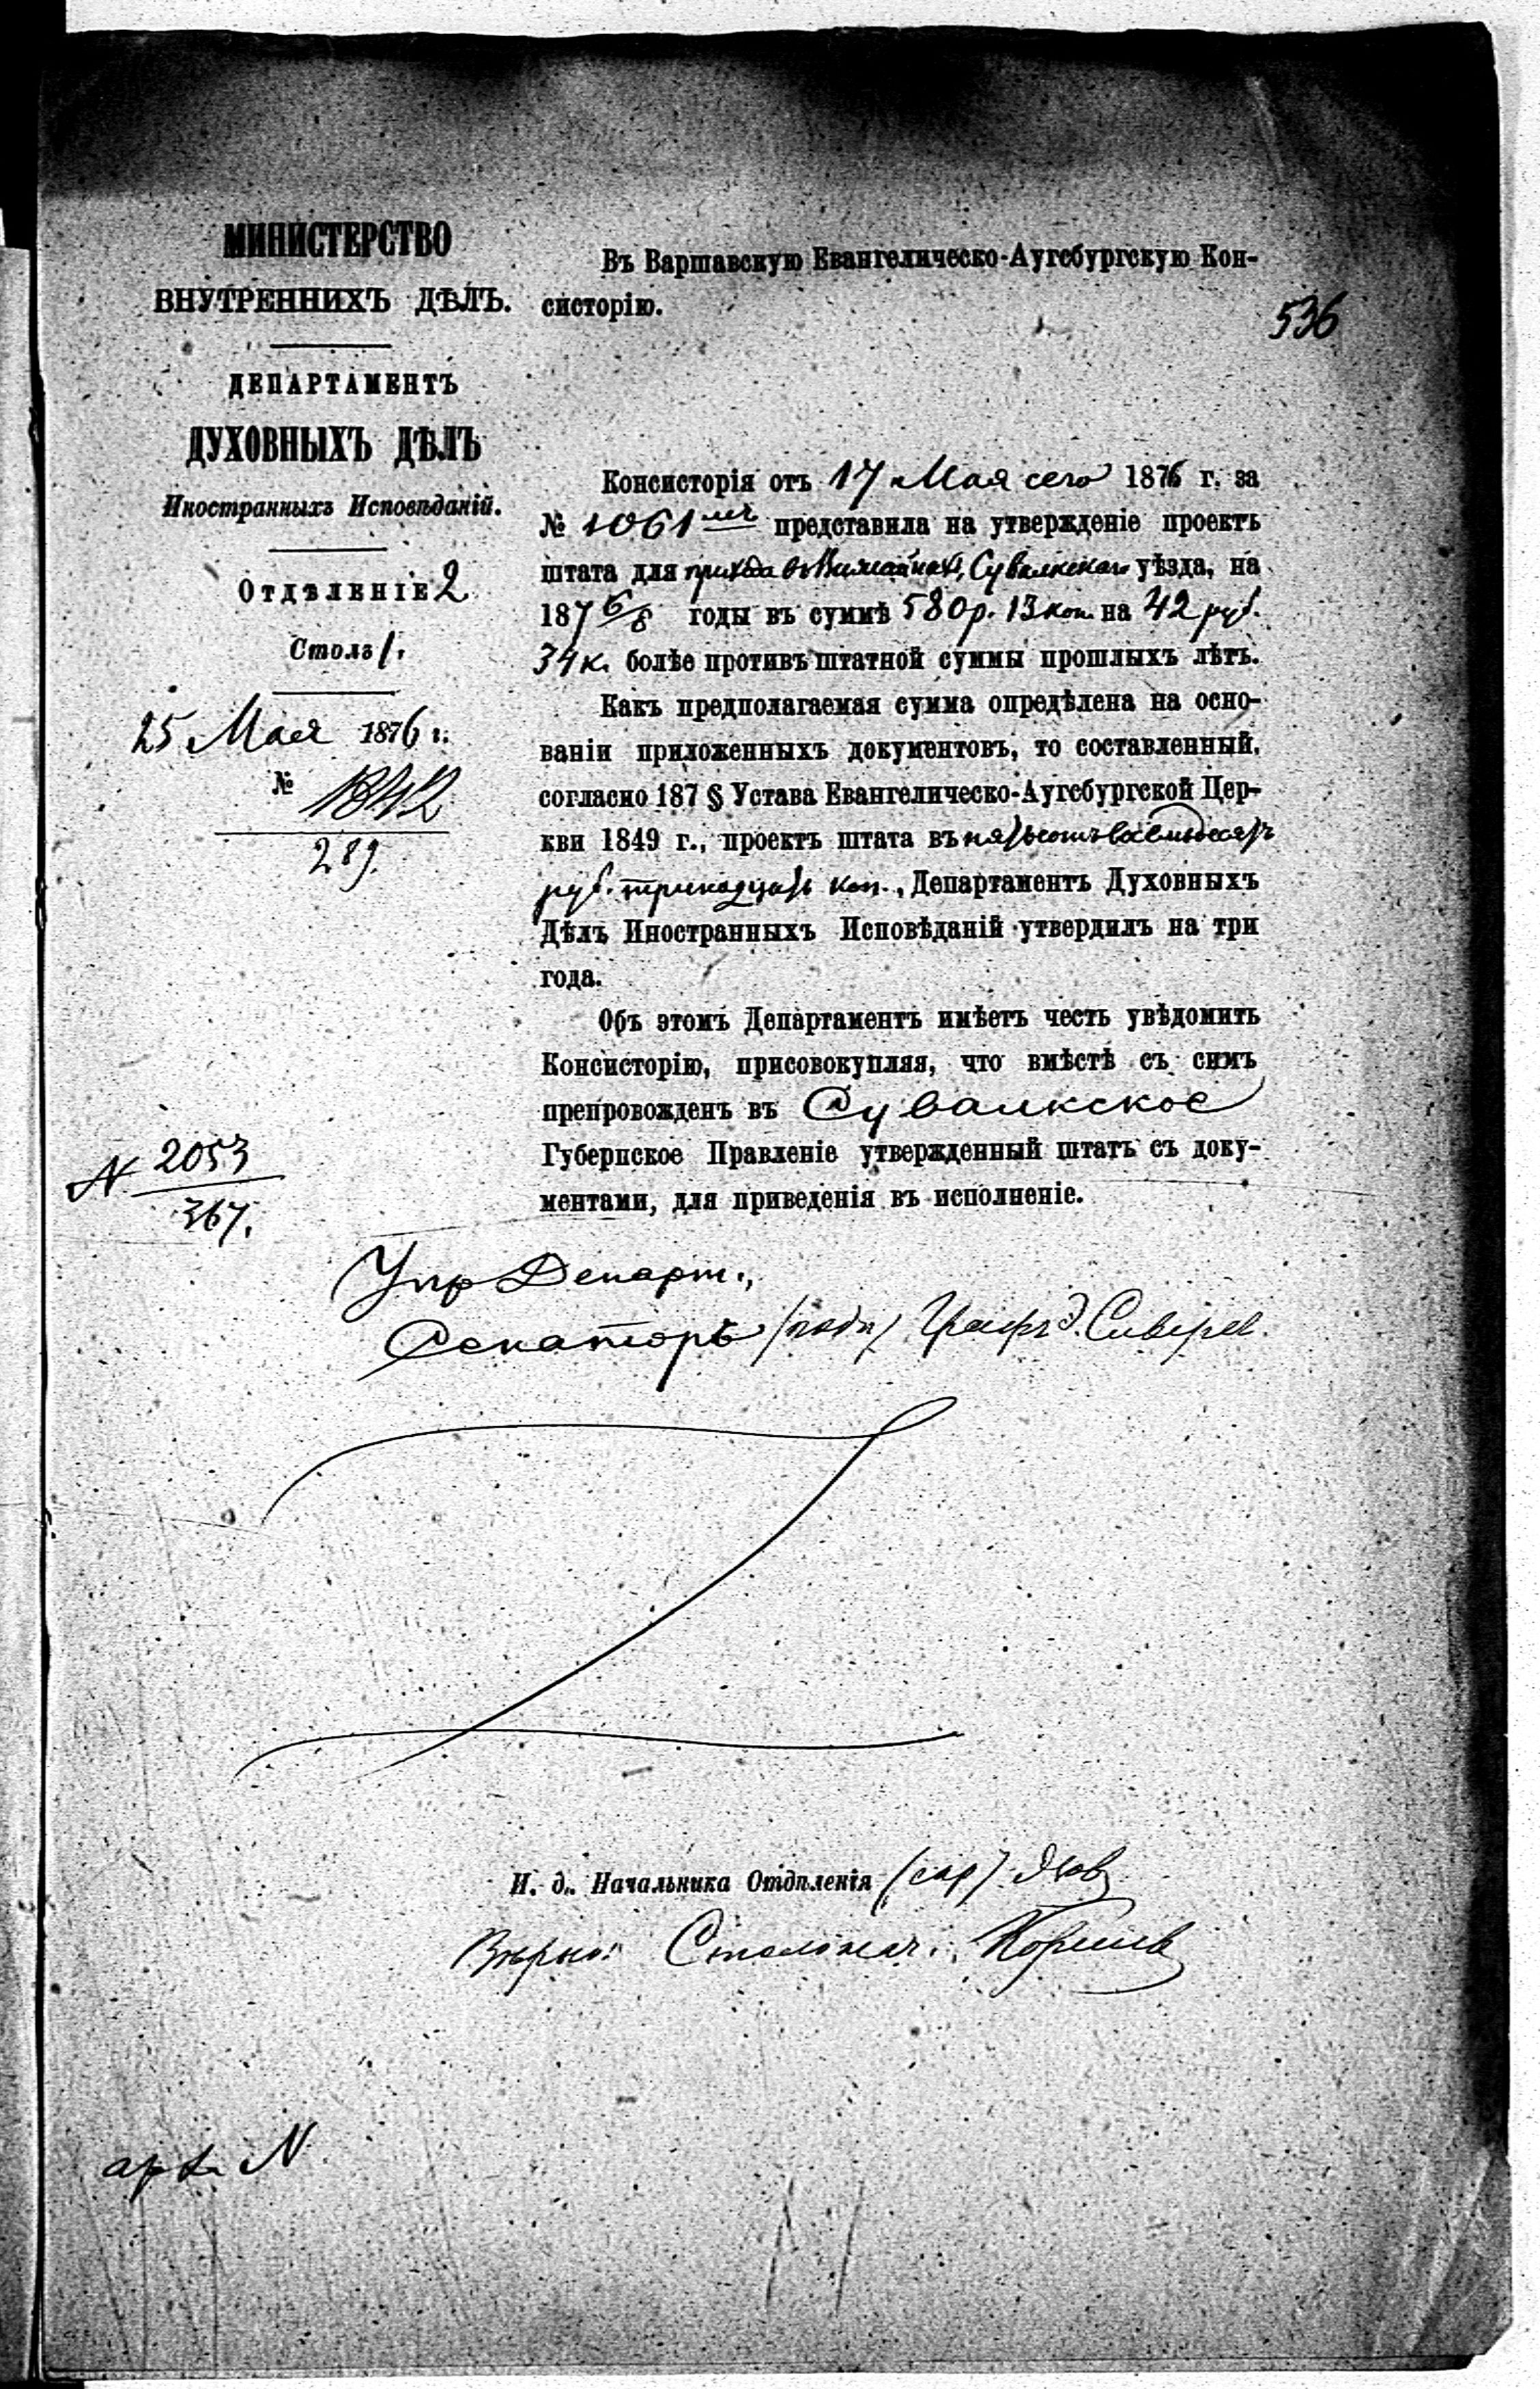 МИНИСТЕРСТВО
ВНУТРЕННИХЪ ДѢЛЪ.
ДЕПАРТАМЕНТЪ
ДУХОВНЫХЪ ДѢЛЪ
Иностранныхъ Исповѣданій.
Отдѣленіе 2
Столъ 1.
25 Мая 1876 г.
№ 1842
289.
№ 2053
367.
Въ Варшавскую Евангелическо-Аугсбургскую Кон-
систорію.
536
Консисторія отъ 17 Мая сего 1876 г. за
№ 1061 мъ представила на утвержденіе проектъ
штата для прихода въ Вижайнахъ, Сувалкскаго уѣзда, на
187 6/8 годы въ суммѣ 580 р. 13 коп. на 42 руб.
34 к. болѣе противъ штатной суммы прошлыхъ лѣтъ.
Какъ предполагаемая сумма опредѣлена на осно-
ваніи приложенныхъ документовъ, то составленный,
согласно 187 § Устава Евангелическо-Аугсбургской Цер-
кви 1849 г., проектъ штата въ пятьсотъ восемьдесятъ
руб. тринадцать коп., Департаментъ Духовныхъ
Дѣлъ Иностранныхъ Исповѣданій утвердилъ на три
года.
Объ этомъ Департаментъ имѣетъ честь увѣдомить
Консисторію, присовокупляя, что вмѣстѣ съ симъ
препровожденъ въ Сувалкское
Губернское Правленіе утвержденный штатъ съ доку-
ментами, для приведенія въ исполненіе.
Упр Департ.,
Сенаторъ (подп) Графъ Э. Сиверсъ.
И. д. Начальника Отдѣленія (скр)
Вѣрно: Столонач.